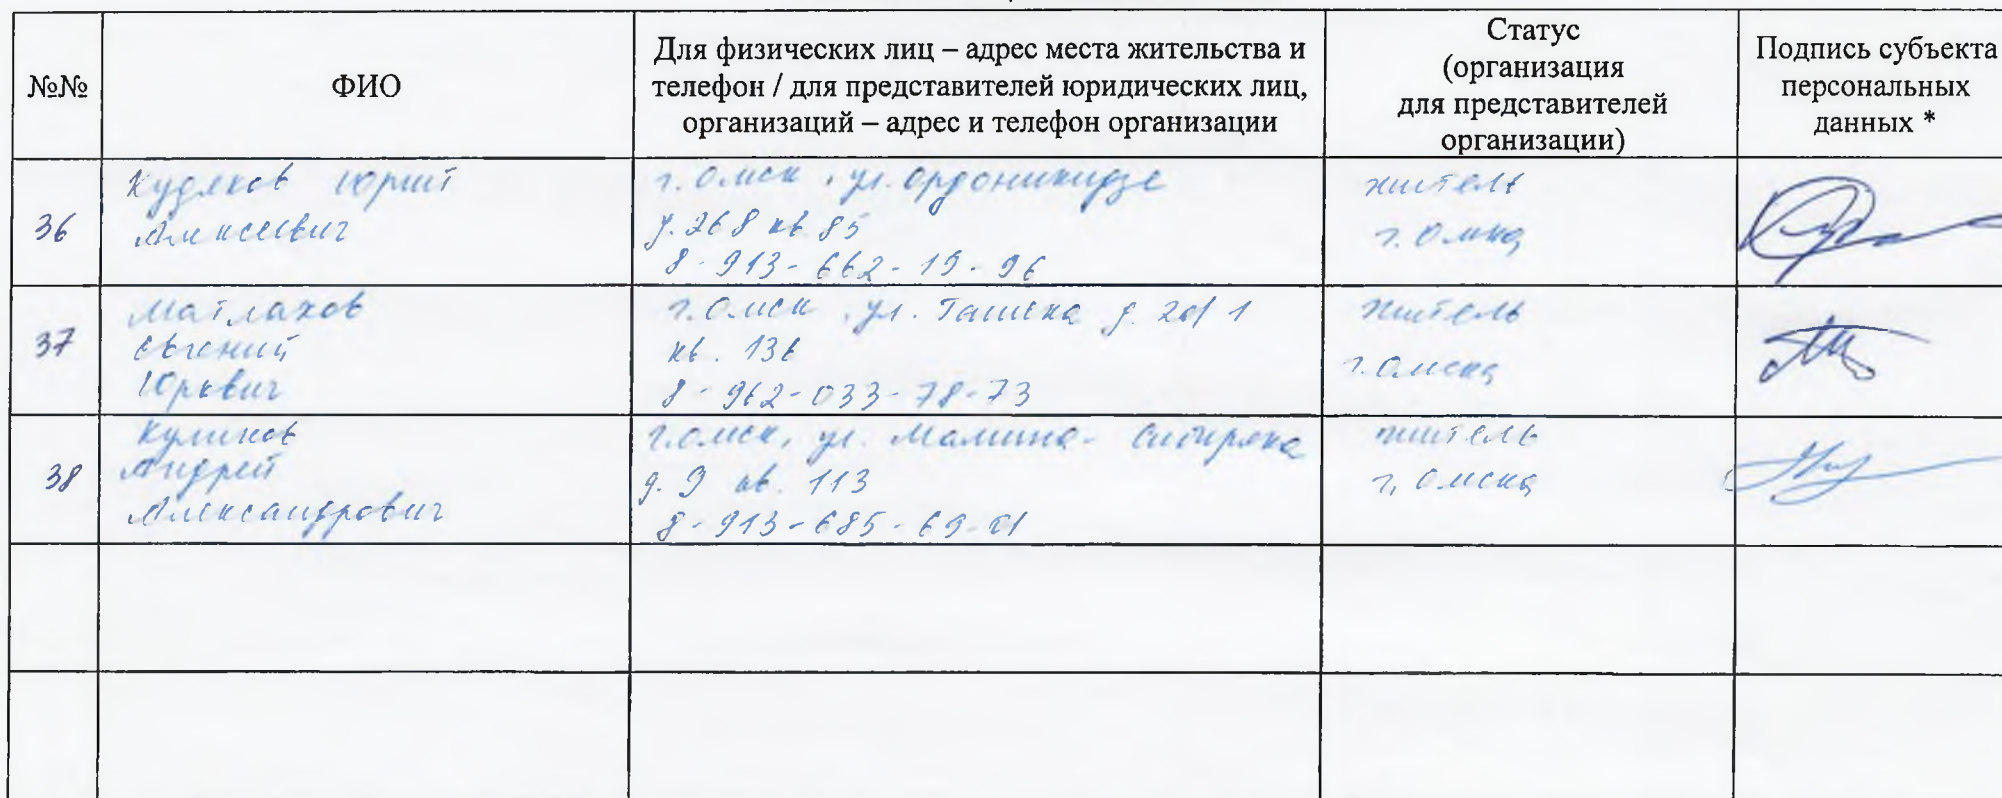 №№
ФИО
Для физических лиц – адрес места жительства и
телефон / для представителей юридических лиц,
организаций – адрес и телефон организации
Статус
(организация
для представителей
организации)
Подпись субъекта
персональных
данных *
36
Кудяков Юрий
Алексеевич
г. Омск, ул. Орджоникидзе
д. 268 кв 85
8-913-662-19-96
житель
г. Омка
37
Матлахов
Евгений
Юрьевич
г. Омск, ул. д. 20/1
кв. 136
8-962-033-78-73
житель
г. Омска
38
Куликов
Андрей
Александрович
г. Омск, ул. Мамина-Сибиряка
д. 9 кв. 113
8-913-685-69-01
житель
г. Омска